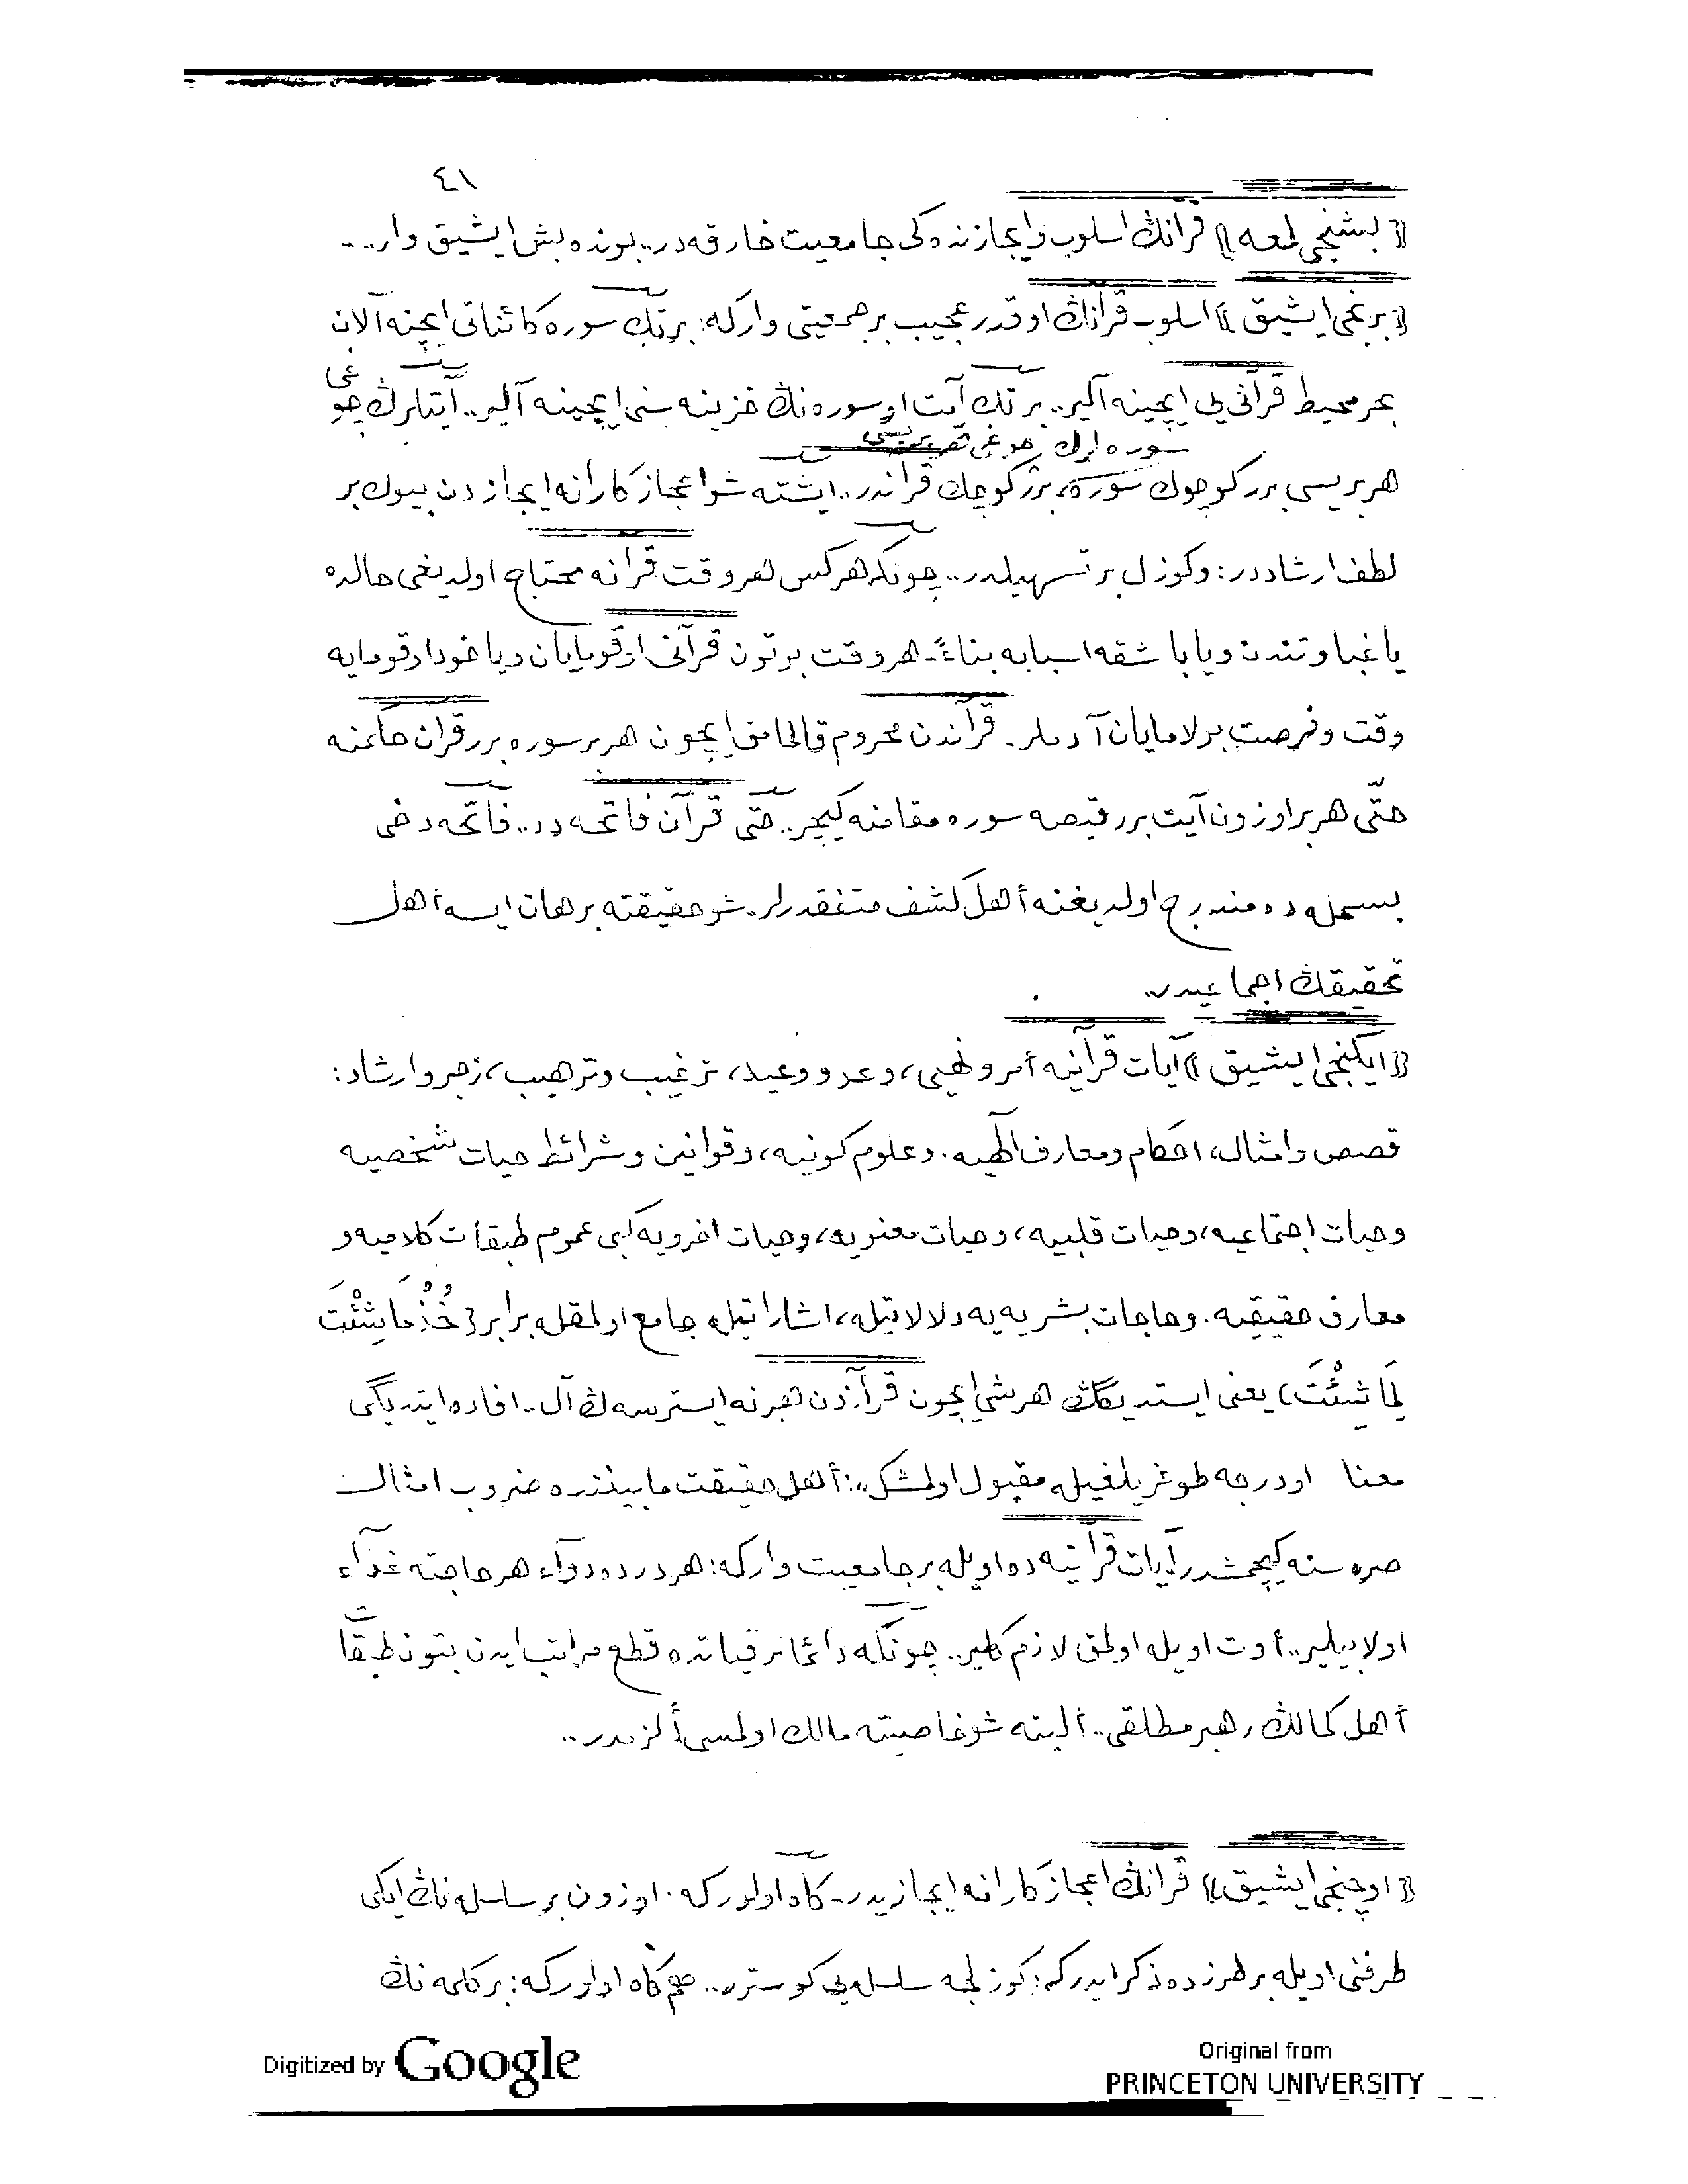 ٤١
«بشنجی لمعه» قرآنڭ اسلوب وایجازنده‌کی جامعیت خارقه‌در.. بونده بش ایشیق وار..
«برنجی ایشیق» اسلوب قرآنڭ اوقدر عجیب بر جمعیتی وارکه: برتك سوره کائناتی ایچنه آلان
بحر محیط قرآنی‌یی ایچینه آلیر.. برتك آیت او سوره‌نڭ خزینه‌سنی ایچینه آلیر.. آیتلرڭ چوغی
سوره‌لرك چوغی
هربریسی برر کوچوك سوره، برر کوچك قرآندر.. ایشته شو اعجازکارانه ایجازدن بیوك بر
لطف ارشاددر: وکوزل بر تسهیلدر.. چونکه هرکس هروقت قرآنه محتاج اولدیغی حالده
یا غباوتندن ویا باشقه اسبابه بناءً- هروقت بوتون قرآنی اوقومایان ویاخود اوقومایه
وقت وفرصت بولامایان آدملر. قرآندن محروم قالمامق ایچون هر بر سوره برر قرآن حکمنه
حتّی هر بر اوزون آیت برر قیصه سوره مقامنه کیچر.. حتّی قرآن فاتحه‌ده.. فاتحه دخی
بسمله‌ده مندرج اولدیغنه أهل کشف متفقدرلر.. شو حقیقته برهان ایسه أهل
تحقیقڭ اجماعیدر..
«ایکنجی ایشیق» آیات قرآنیه أمر ونهیی، وعد ووعید، ترغیب وترهیب، زجر وارشاد:
قصص وامثال، احکام ومعارف الٰهیه. وعلوم کونیه، وقوانین وشرائط حیات شخصیه
وحیات اجتماعیه، وحیات قلبیه، وحیات معنویه، وحیات اخرویه کبی عموم طبقات کلامیه و
معارف حقیقیه. وحاجات بشریه‌یه دلالاتیله، اشاراتیله جامع اولمقله برابر ﴿خُذْ مَا شِئْتَ
لِمَا شِئْتَ﴾ یعنی ایستدیگڭ هرشی ایچون قرآندن هر نه ایسترسه‌ڭ آل.. افاده ایتدیگی
معنا اودرجه طوغریلغیله مقبول اولمش‌که: أهل حقیقت مابیننده ضروب امثال
صره‌سنه کیچمشدر. آیات قرآنیه‌ده اویله بر جامعیت وارکه: هر درده دوآء هر حاجته غذآء
اولابیلیر.. أوت اویله اولمق لازم کلیر.. چونکه دائما ترقیاتده قطع مراتب ایدن بتون طبقات
أهل کمالڭ رهبر مطلقی.. ألبته شو خاصیته مالك اولمسی ألزمدر..
«اوچنجی ایشیق» قرآنڭ اعجازکارانه ایجازیدر- کاه اولورکه. اوزون بر سلسله‌نڭ ایکی
طرفنی اویله بر طرزده ذکر ایدرکه: کوزلجه سلسله‌یی کوستره.. هم کاه اولورکه: بر کلمه‌نڭ
Digitized by Google
Original from
PRINCETON UNIVERSITY